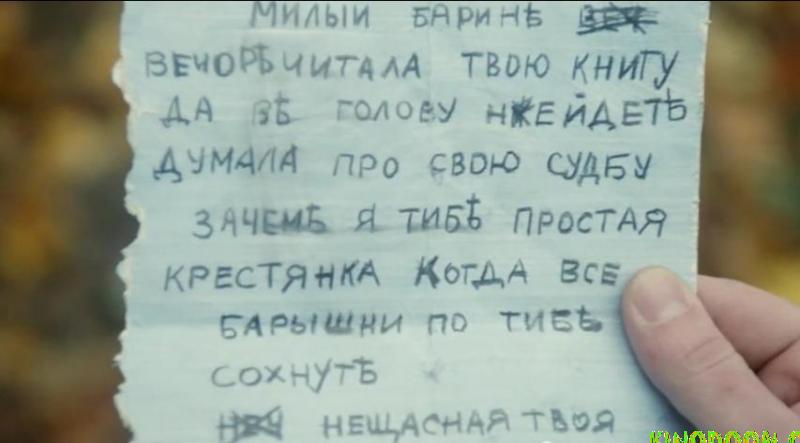 МИЛЫЙ БАРИНѢ
ВЕЧОРѢ ЧИТАЛА ТВОЮ КНИГУ
ДА ВѢ ГОЛОВУ НЕЙДЕТѢ
ДУМАЛА ПРО СВОЮ СУДБУ
ЗАЧЕМѢ Я ТИБѢ ПРОСТАЯ
КРЕСТЯНКА КОГДА ВСЕ
БАРЫШНИ ПО ТИБѢ
СОХНУТѢ
НЕЩАСНАЯ ТВОЯ